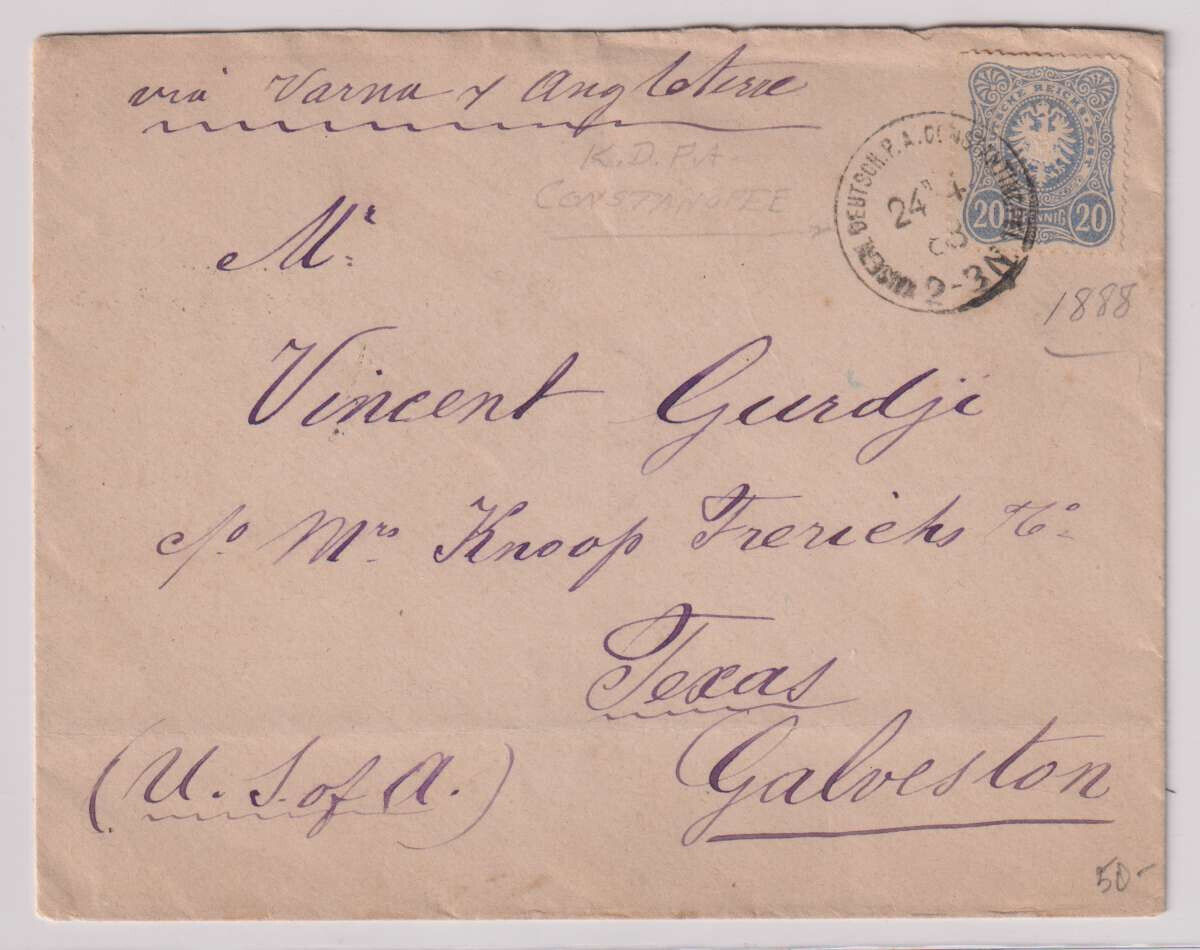 via Varna & Angleterre
K.D.P.A.
CONSTANOPEE
DEUTSCHE REICHS-POST
20 PFENNIG 20
KAISERL. DEUTSCH. P. A. CONSTANTINOPEL
24 4
88
2-3N
1888
Mr.
Vincent Gurdji
c/o Mrs Knoop Frerichs & Co.
Texas
Galveston
(U. S. of A.)
50-